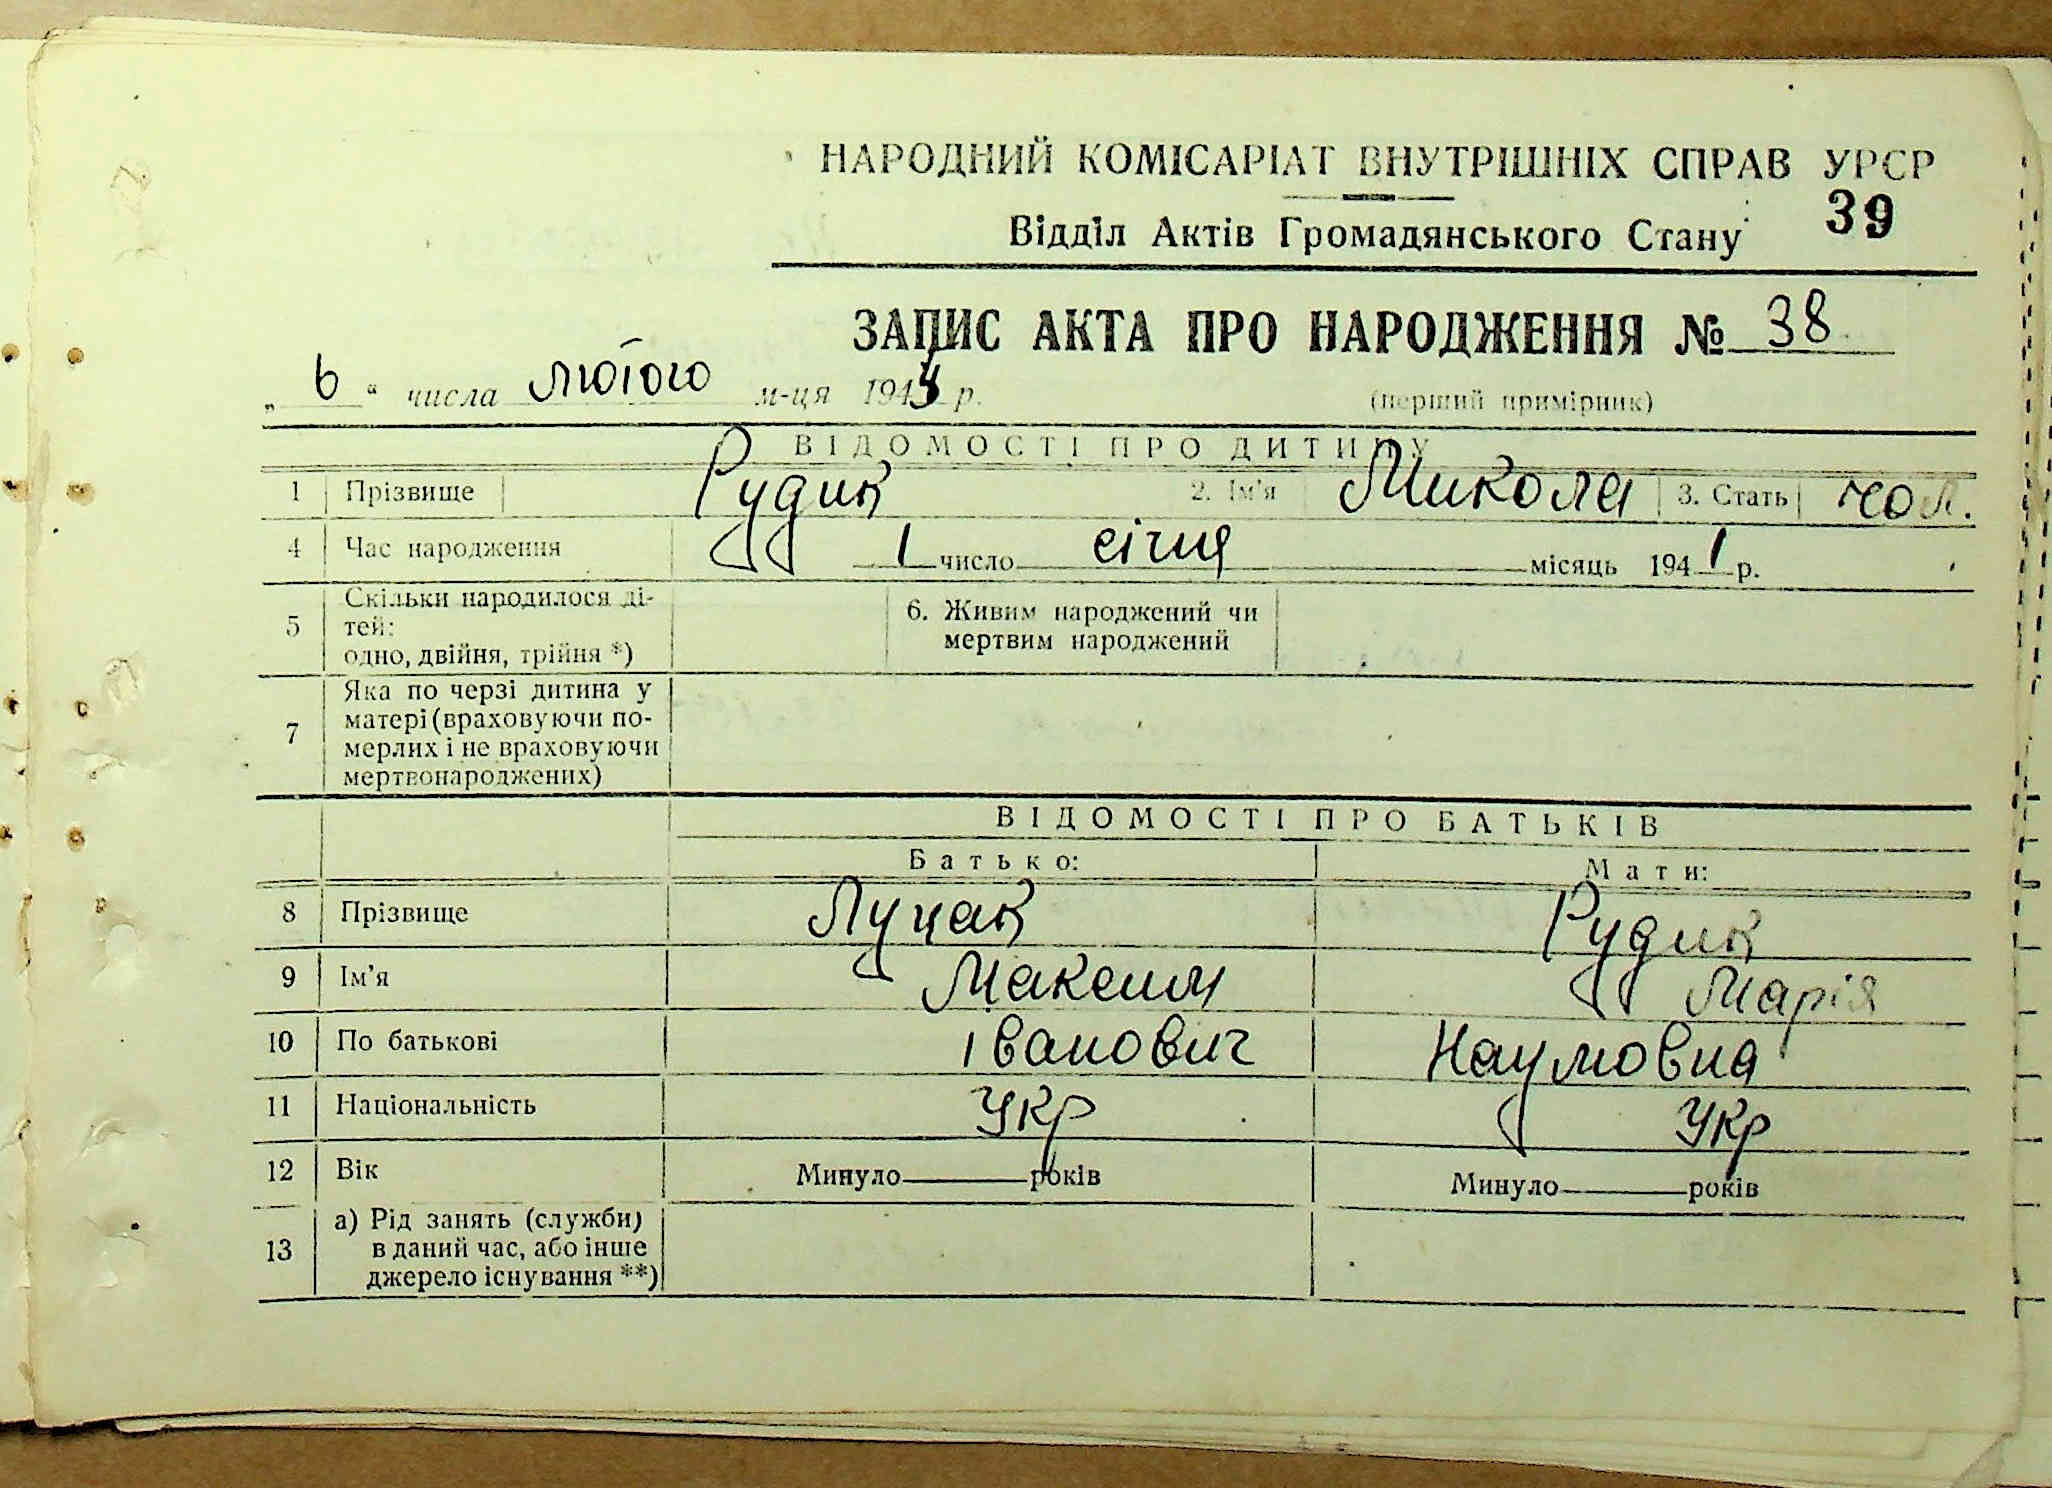 НАРОДНИЙ КОМІСАРІАТ ВНУТРІШНІХ СПРАВ УРСР
39
Відділ Актів Громадянського Стану
ЗАПИС АКТА ПРО НАРОДЖЕННЯ № 38
„ 6 “ числа лютого м-ця 1944 р.
(перший примірник)
ВІДОМОСТІ ПРО ДИТИНУ
1 Прізвище Рудик 2. Ім'я Микола 3. Стать чол.
4 Час народження 1 число січня місяць 1941 р.
5 Скільки народилося ді-
тей:
одно, двійня, трійня *)
6. Живим народжений чи
мертвим народжений
7 Яка по черзі дитина у
матері (враховуючи по-
мерлих і не враховуючи
мертвонароджених)
ВІДОМОСТІ ПРО БАТЬКІВ
Батько: Мати:
8 Прізвище Луцак Рудик
9 Ім'я Максим Марія
10 По батькові Іванович Наумовна
11 Національність Укр Укр
12 Вік Минуло років Минуло років
13 а) Рід занять (служби)
в даний час, або інше
джерело існування **)